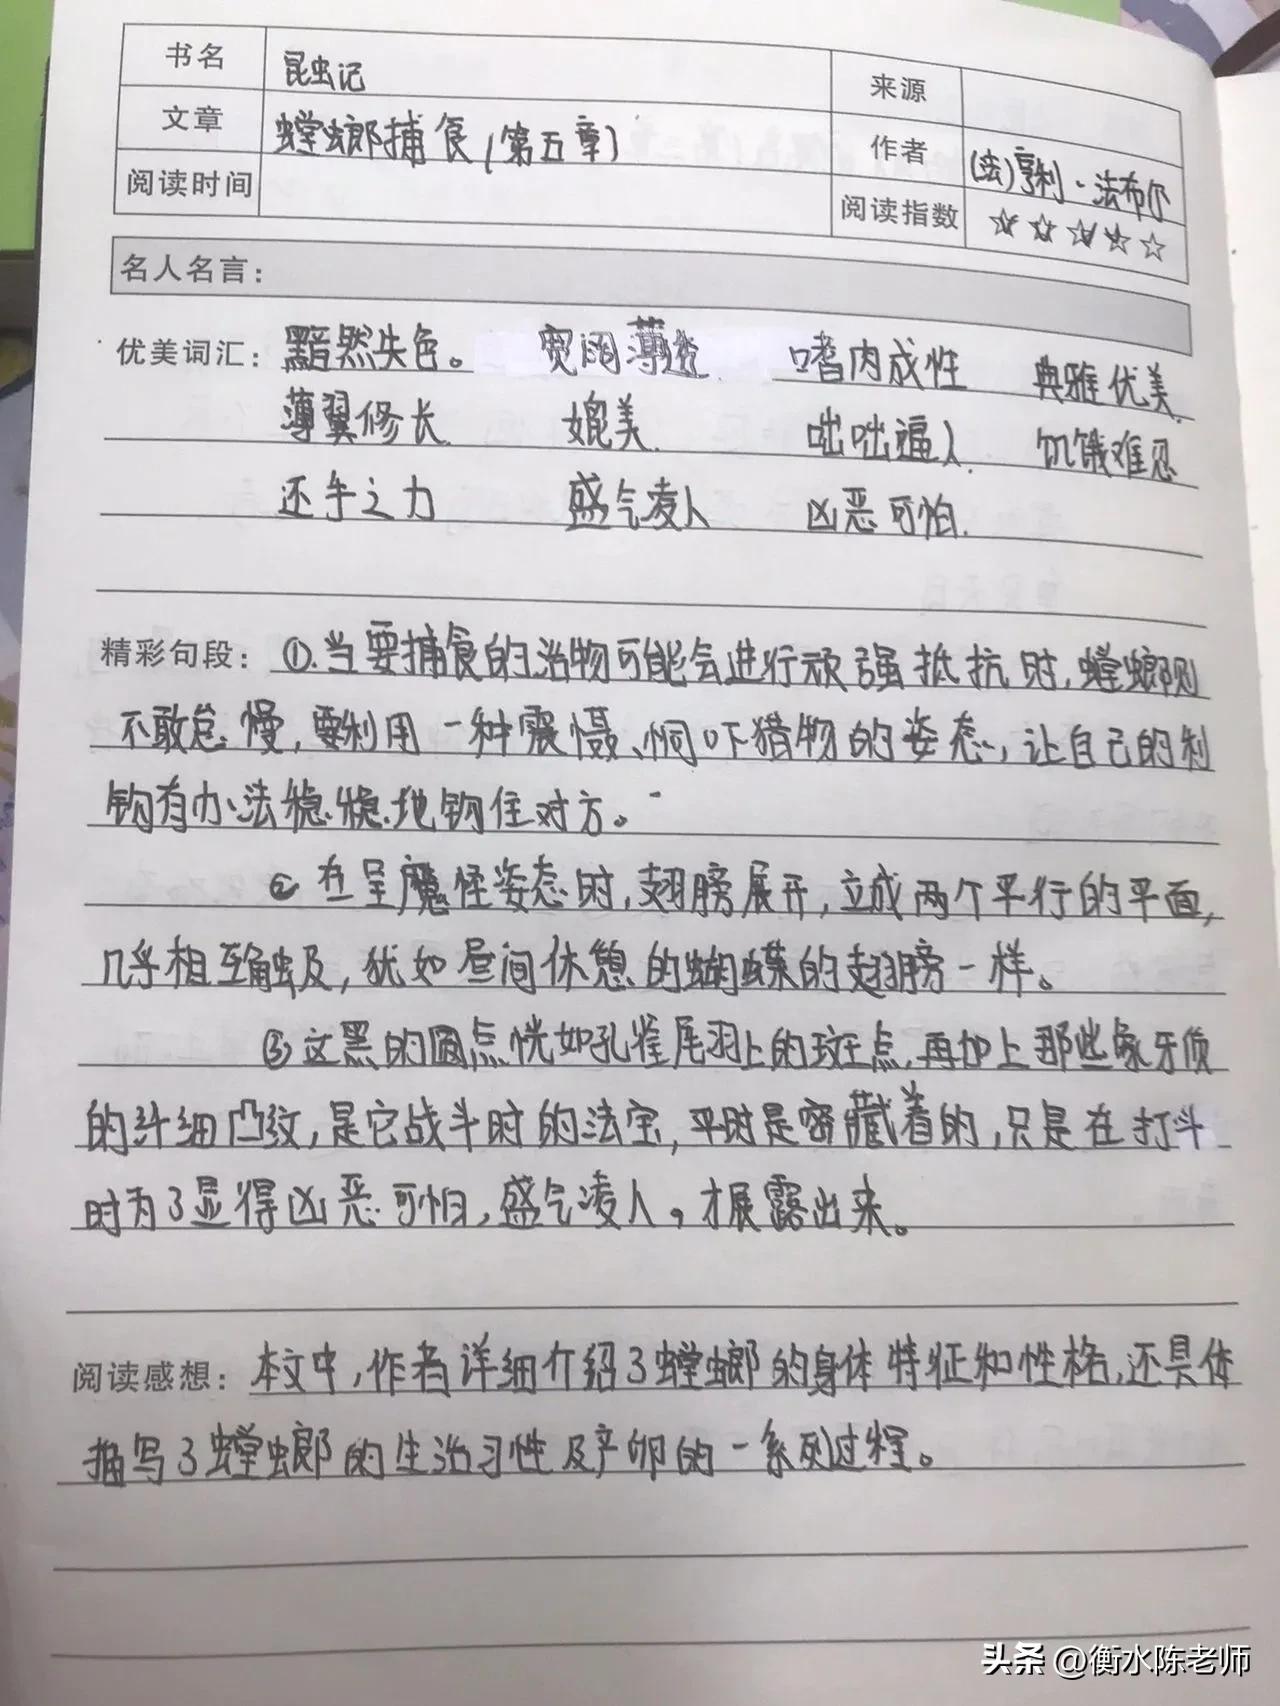 书名 昆虫记 来源
文章 螳螂捕食(第五章) 作者 (法)亨利·法布尔
阅读时间 阅读指数 ☆☆☆☆☆
名人名言：
优美词汇：黯然失色。 宽阔薄透 嗜肉成性 典雅优美.
薄翼修长. 媲美. 咄咄逼人. 饥饿难忍
还手之力 盛气凌人 凶恶可怕.
精彩句段：①.当要捕食的活物可能会进行顽强抵抗时,螳螂则
不敢怠慢,要利用一种震慑、恫吓猎物的姿态,让自己的利
钩有办法稳稳地钩住对方。
② 在呈魔怪姿态时,翅膀展开,立成两个平行的平面,
几乎相互触及,犹如昼间休憩的蝴蝶的翅膀一样。
③这黑的圆点恍如孔雀尾羽上的斑点,再加上那些象牙质
的纤细凸纹,是它战斗时的法宝,平时是密藏着的,只是在打斗
时为了显得凶恶可怕,盛气凌人,才展露出来。
阅读感想：本文中,作者详细介绍了螳螂的身体特征和性格,还具体
描写了螳螂的生活习性及产卵的一系列过程。
头条 @衡水陈老师